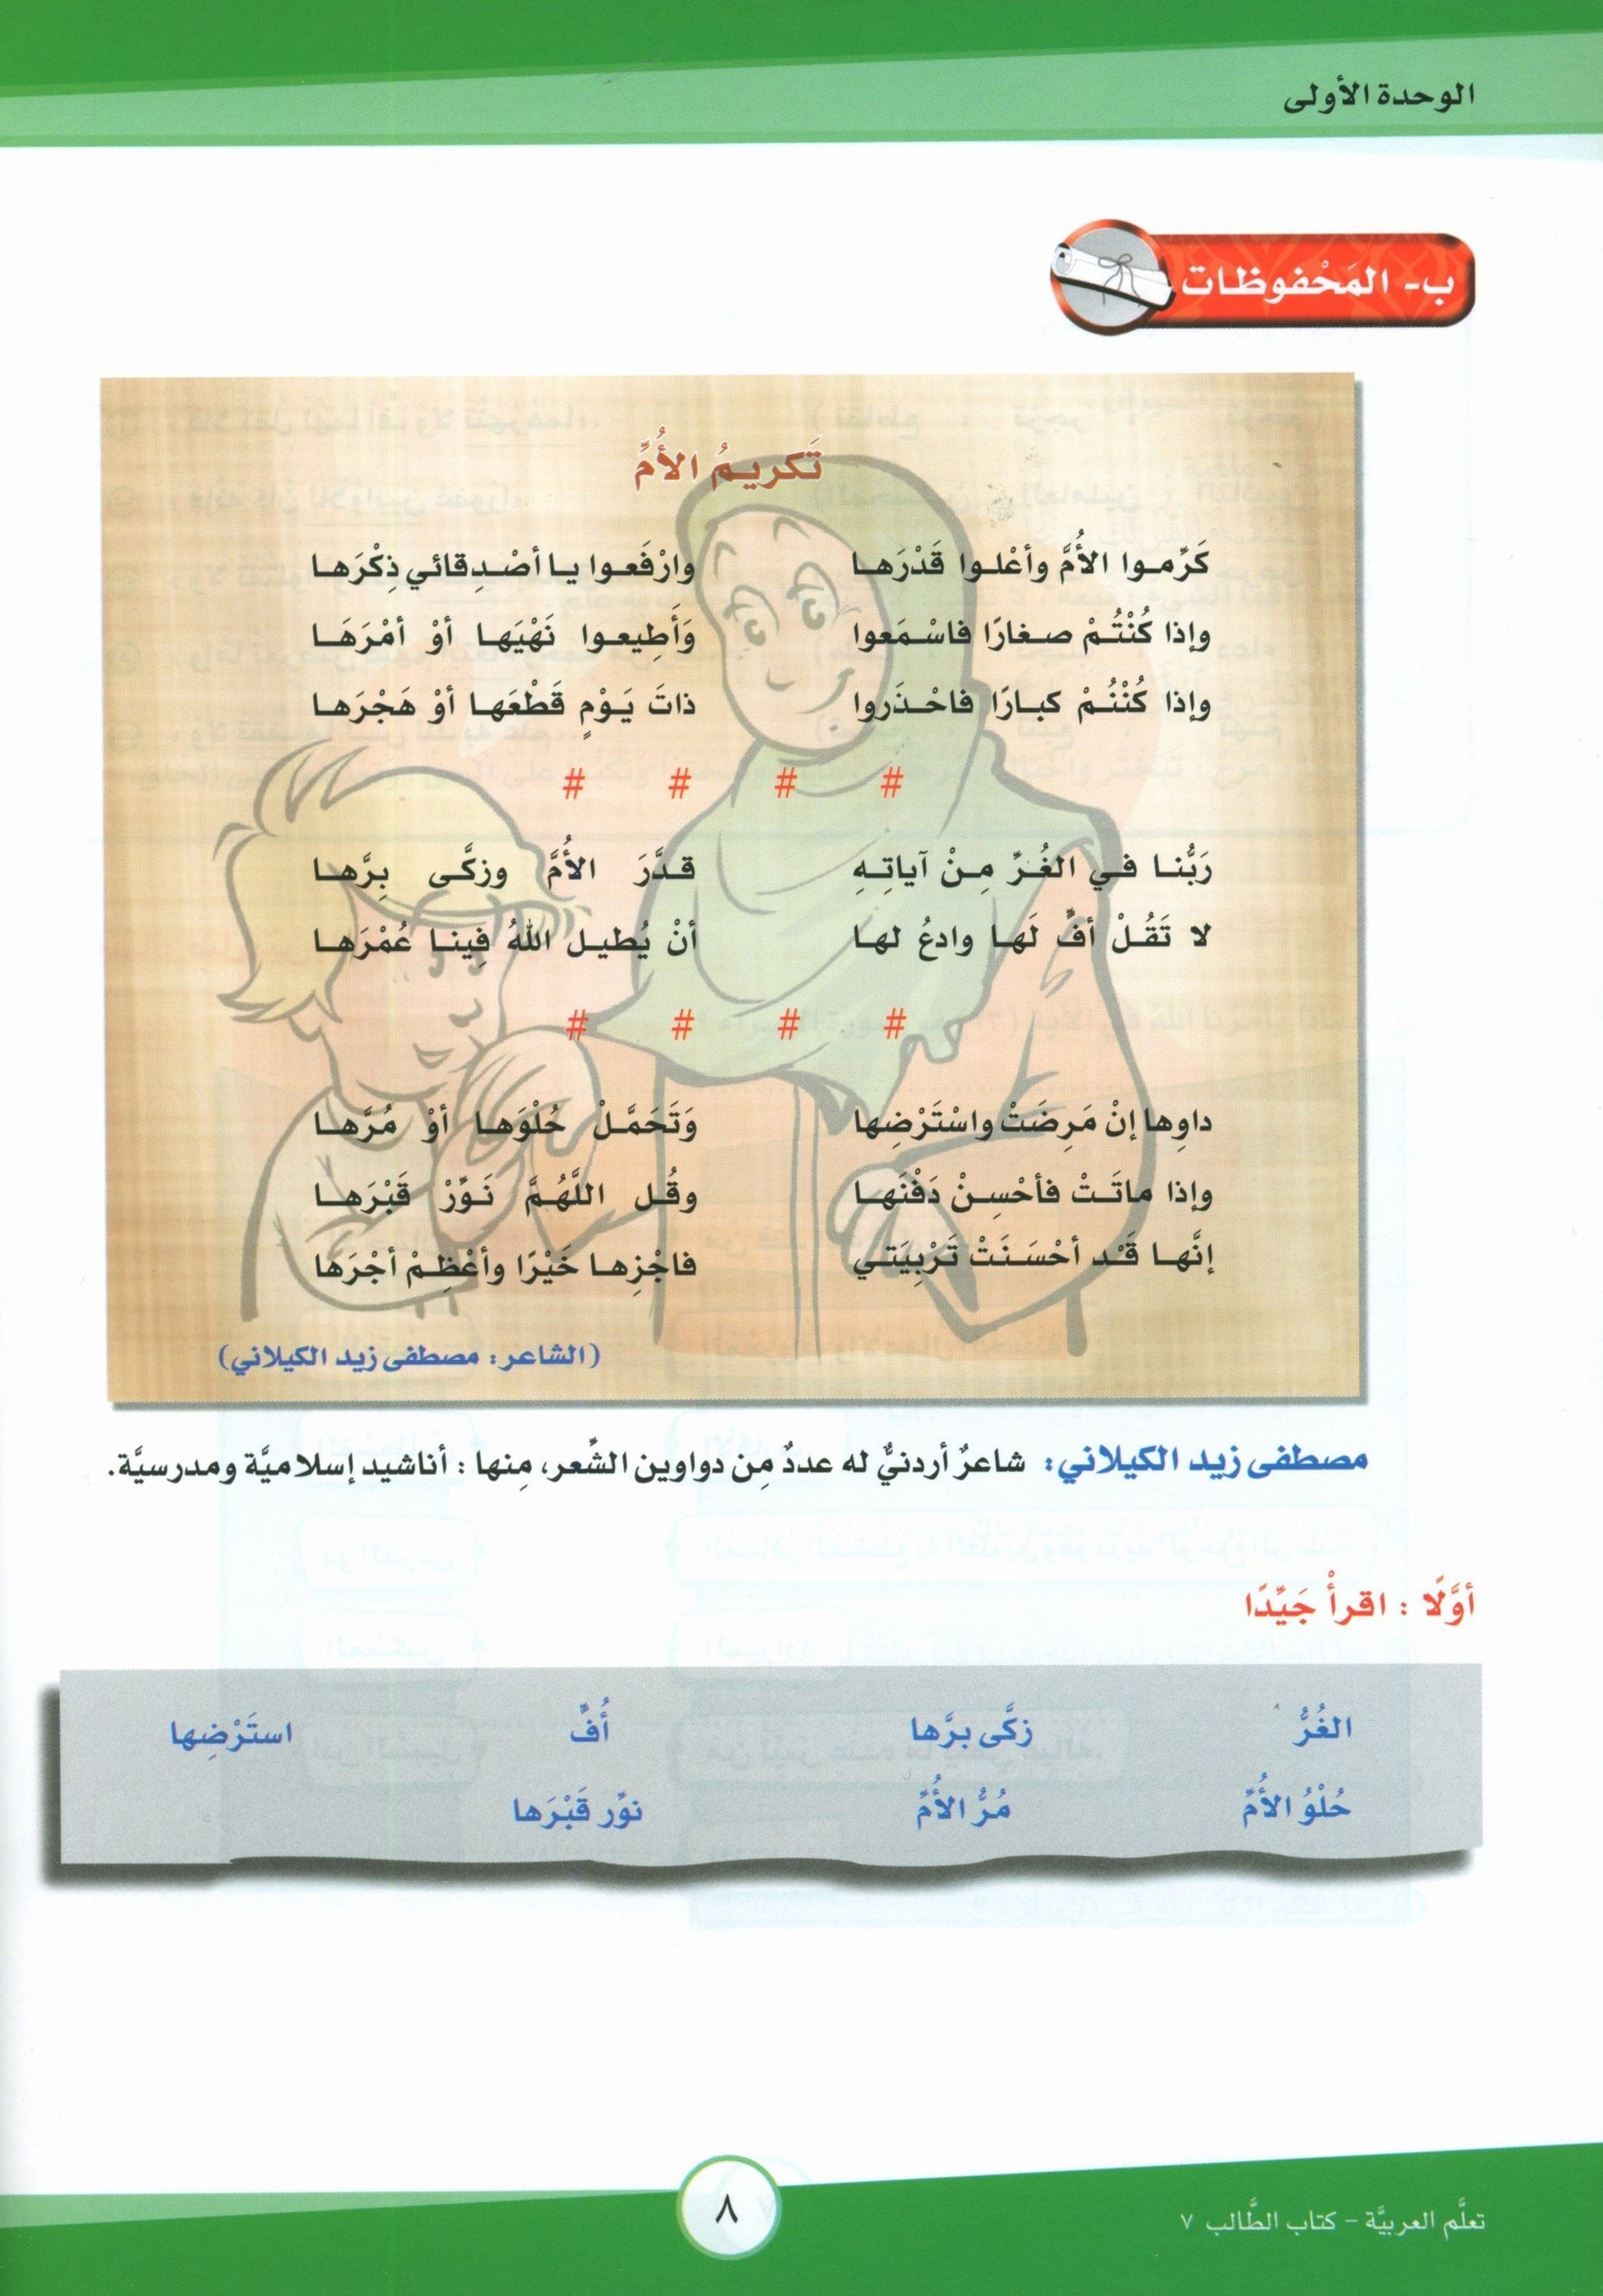 الوحدة الأولى
ب- المَحْفوظات
تَكريمُ الأُمِّ
كَرِّمـوا الأُمَّ وأعْلـوا قَدْرَهـا وارْفَعـوا يـا أصْـدِقائي ذِكْرَهـا
وإذا كُنْتُـمْ صـغارًا فاسْـمَعوا وَأَطِيعـوا نَهْيَهـا أوْ أمْرَهَـا
وإذا كُنْتُـمْ كبـارًا فاحْـذَروا ذاتَ يَـوْمٍ قَطْعَهـا أوْ هَجْرَهـا
# # # #
رَبُّنـا فـي الغُـرِّ مِـنْ آياتِـهِ قـدَّرَ الأُمَّ وزكَّـى بِرَّهـا
لا تَقُـلْ أفٍّ لَهـا وادعُ لهـا أنْ يُطيـل اللهُ فِينـا عُمْرَهـا
# # # #
داوِهـا إنْ مَرِضَـتْ واسْتَرْضِها وَتَحَمَّـلْ حُلْوَهـا أوْ مُرَّهـا
وإذا ماتَـتْ فأحْسِـنْ دَفْنَهـا وقُـل اللَّهُـمَّ نَـوِّرْ قَبْرَهـا
إنَّهـا قَـْد أحْسَـنَتْ تَرْبِيَتـي فاجْزِهـا خَيْرًا وأعْظِـمْ أجْرَهـا
(الشاعر: مصطفى زيد الكيلاني)
مصطفى زيد الكيلاني: شاعرٌ أردنيٌّ له عددٌ مِن دواوين الشِّعر، مِنها : أناشيد إسلاميَّة ومدرسيَّة.
أوَّلًا : اقرأْ جَيِّدًا
الغُرُّ زكَّى برَّها أُفٍّ استَرْضِها
حُلْوُ الأُمِّ مُرُّ الأُمِّ نوِّر قَبْرَها
تعلَّم العربيَّة – كتاب الطَّالب ٧
٨